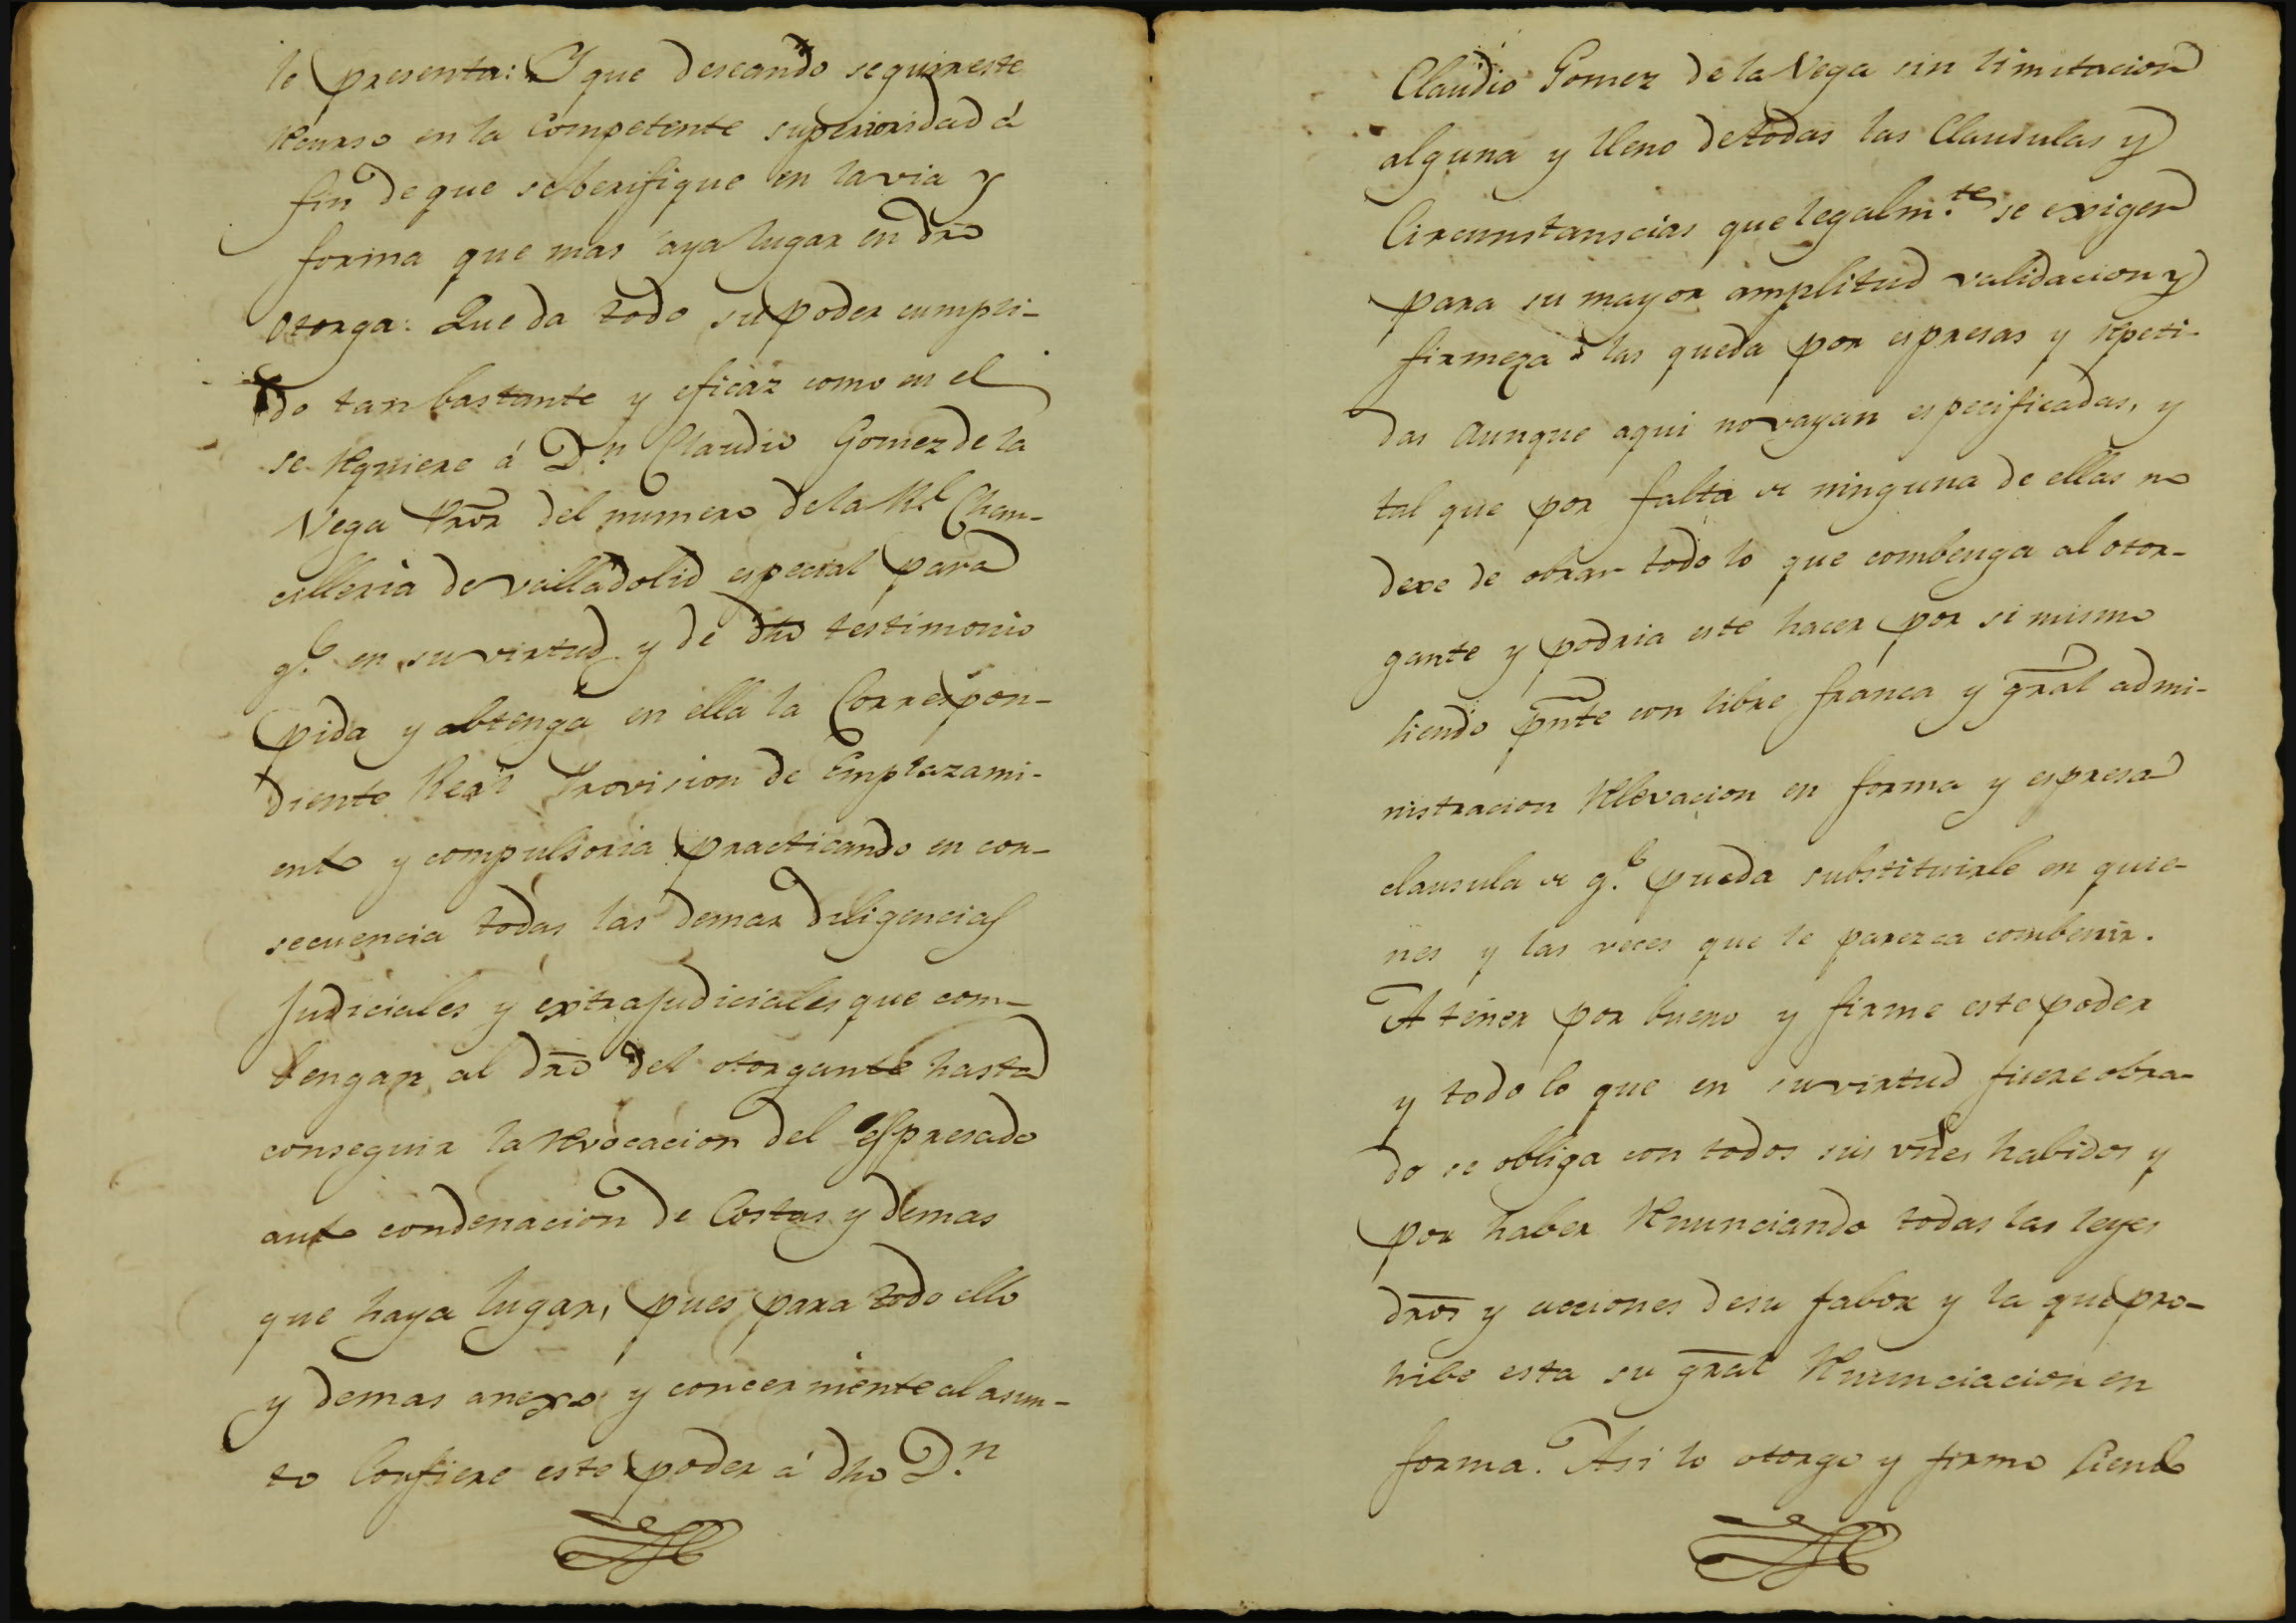 le presenta: Y que deseando seguir este
Recurso en la Competente superioridad á
fin de que se berifique en la via y
forma que mas aya lugar en dro
otorga: Que da todo su poder cumpli-
do tan bastante y eficaz como en el
se Rquiere á Dn Claudio Gomez de la
Vega Pror del numero de la Rl Chan-
cilleria de valladolid especial para
q.e en su virtud y de dho testimonio
pida y obtenga en ella la Correspon-
diente Real Provision de Emplazami-
ento y compulsoria practicando en con-
secuencia todas las demas diligencias
Judiciales y extrajudiciales que com-
bengan al dro del otorgante hasta
conseguir la Rvocacion del espresado
auto condenacion de Costas y demas
que haya lugar, pues para todo ello
y demas anexo y concerniente al asun-
to Confiere este poder á dho D.n
Claudio Gomez de la Vega sin limitacion
alguna y lleno de todas las Clausulas y
Circunstanscias que legalm.te se exigen
para su mayor amplitud validacion y
firmeza las queda por espresas y Rpeti-
das Aunque aqui no vayan especificadas, y
tal que por falta de ninguna de ellas no
dexe de obrar todo lo que combenga al otor-
gante y podria este hacer por si mismo
siendo pnte con libre franca y gral admi-
nistracion Rlevacion en forma y espresa
clausula de q.e pueda substituirle en quie-
nes y las veces que le parezca combenir.
A tener por bueno y firme este poder
y todo lo que en su virtud fuere obra-
do se obliga con todos sus vnes habidos y
por haber Rnunciando todas las leyes
dros y acciones de su fabor y la que pro-
hibe esta su gral Rnunciacion en
forma. Asi lo otorgo y firmo siendo